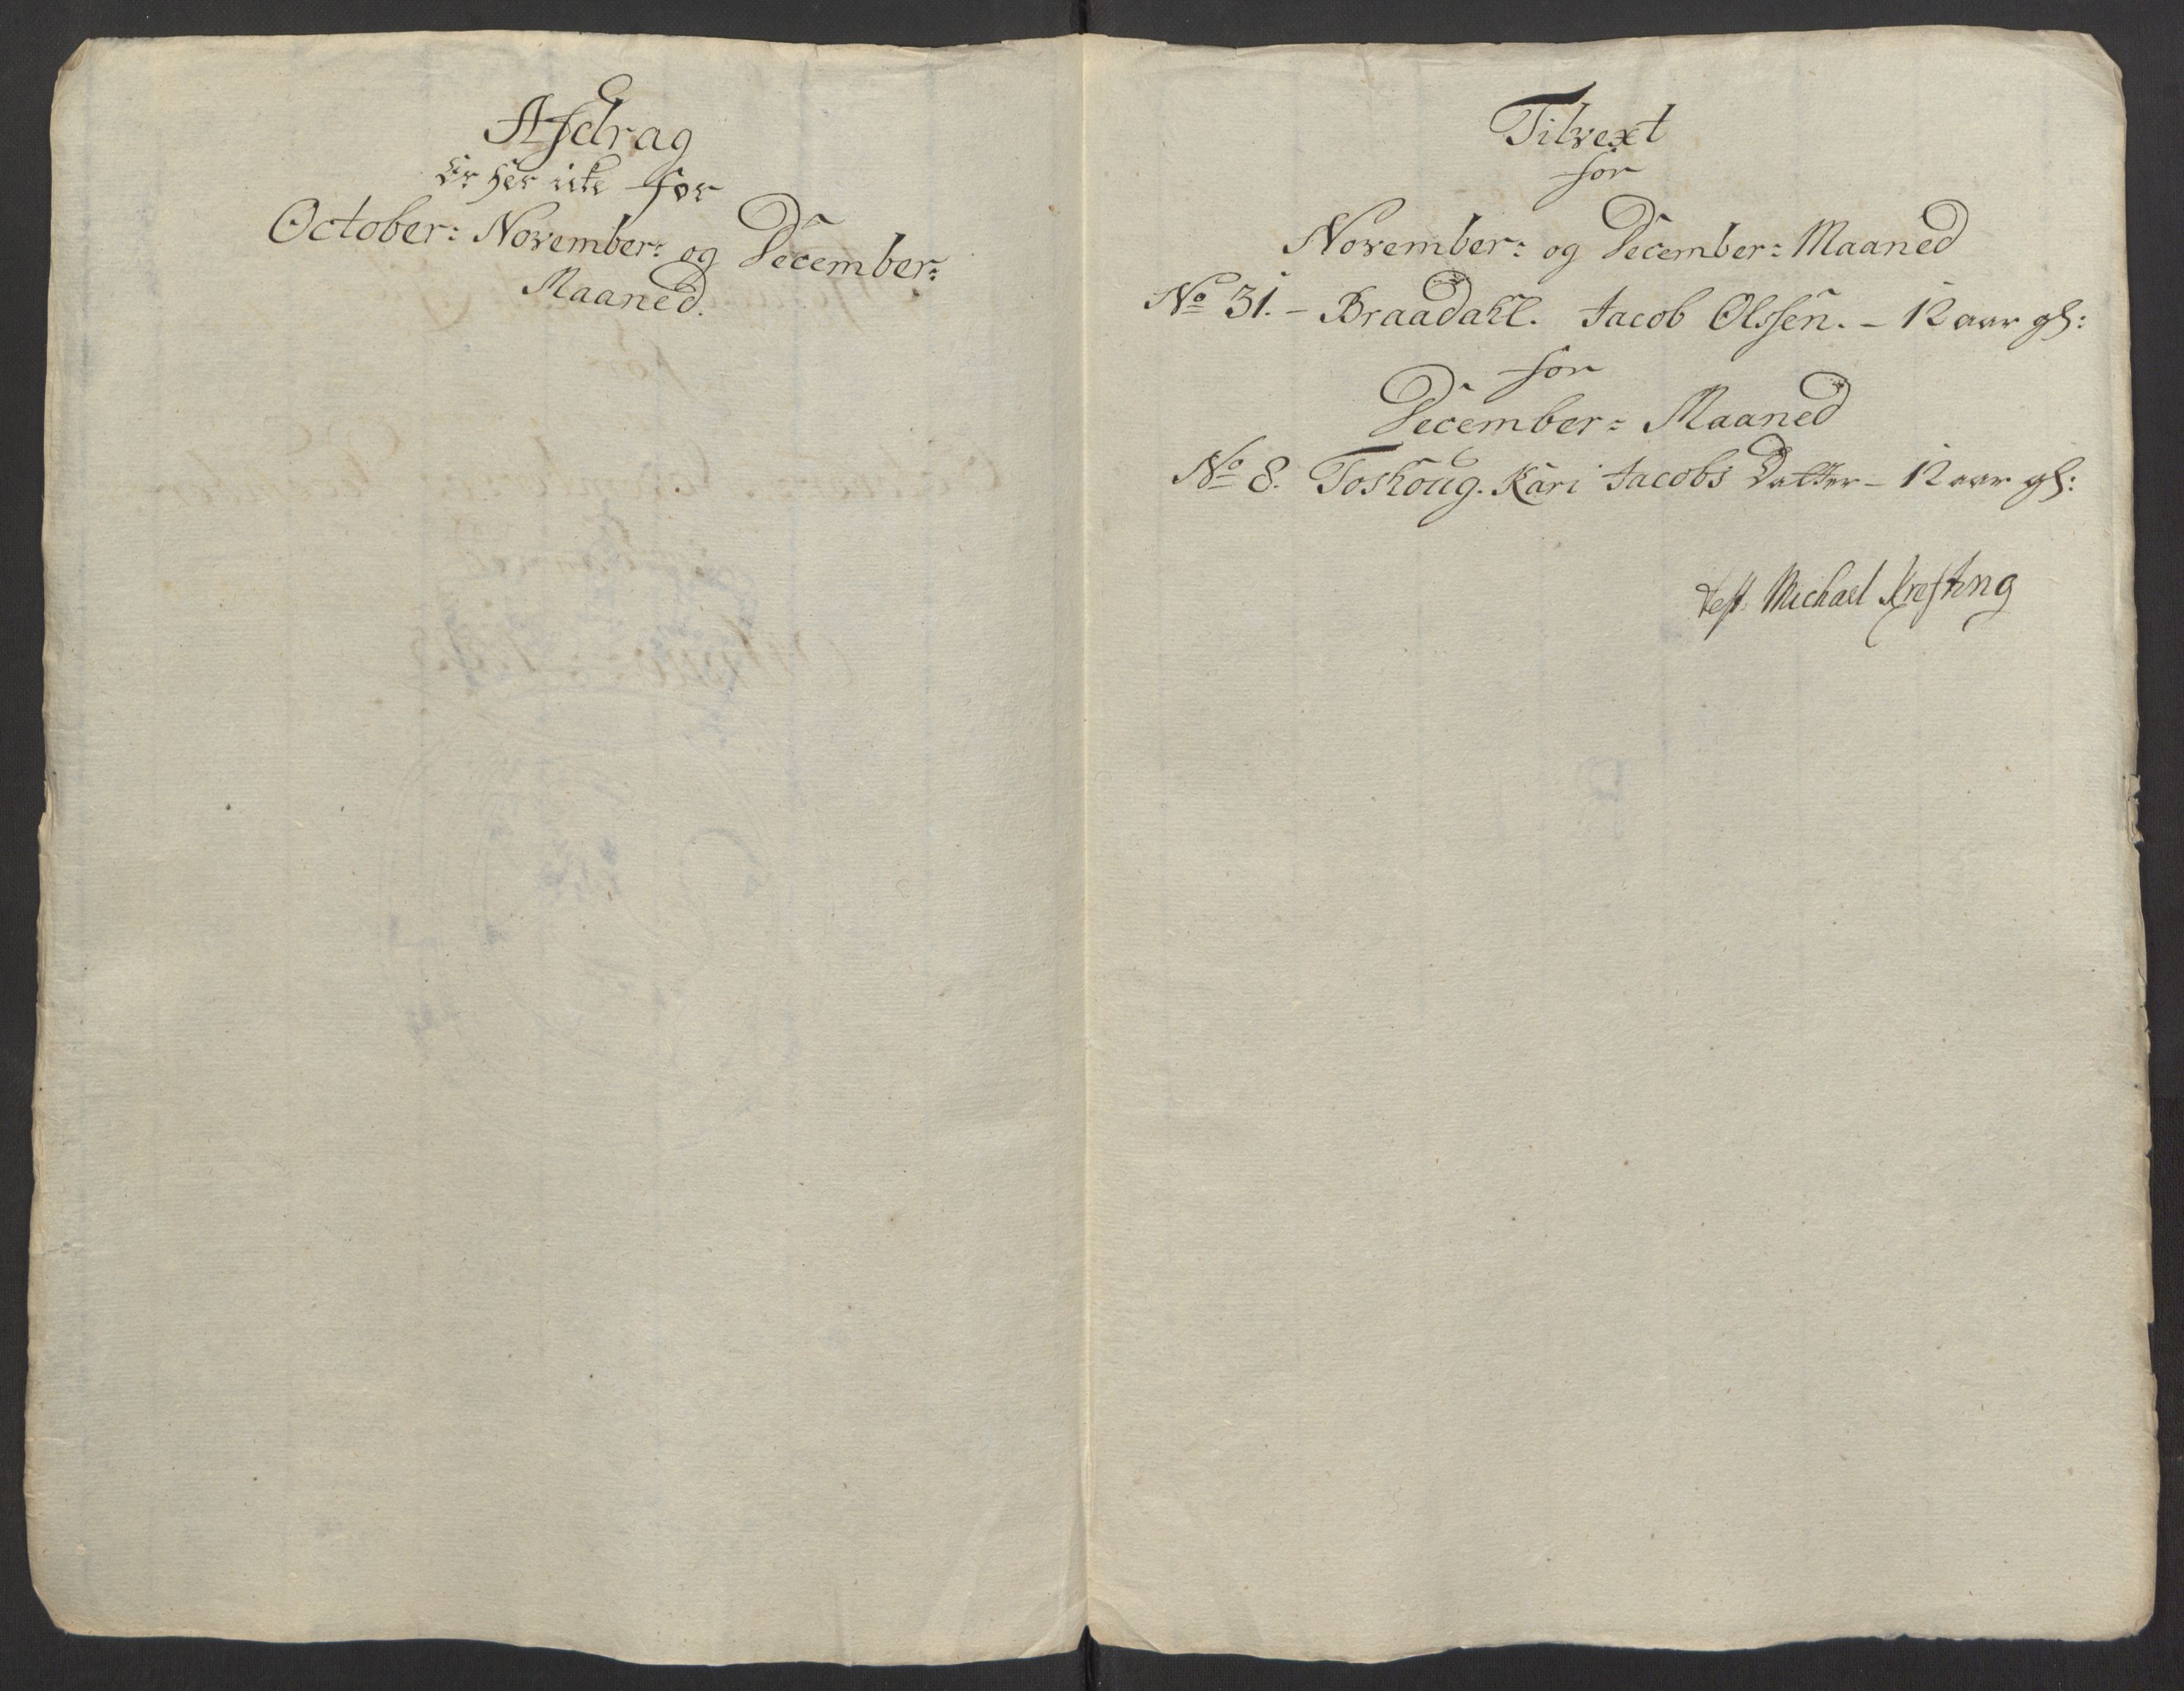 Afdrag
er her icke for
October: November: og December:
Maaned.
Tilvext
for
November: og December: Maaned
No 31. - Braadahl. Jacob Olssen. - 12 aar gl:
for
December: Maaned
No 8. Toskoug. Kari Jacobs Datter - 12 aar gl:
test. Michael Krefting